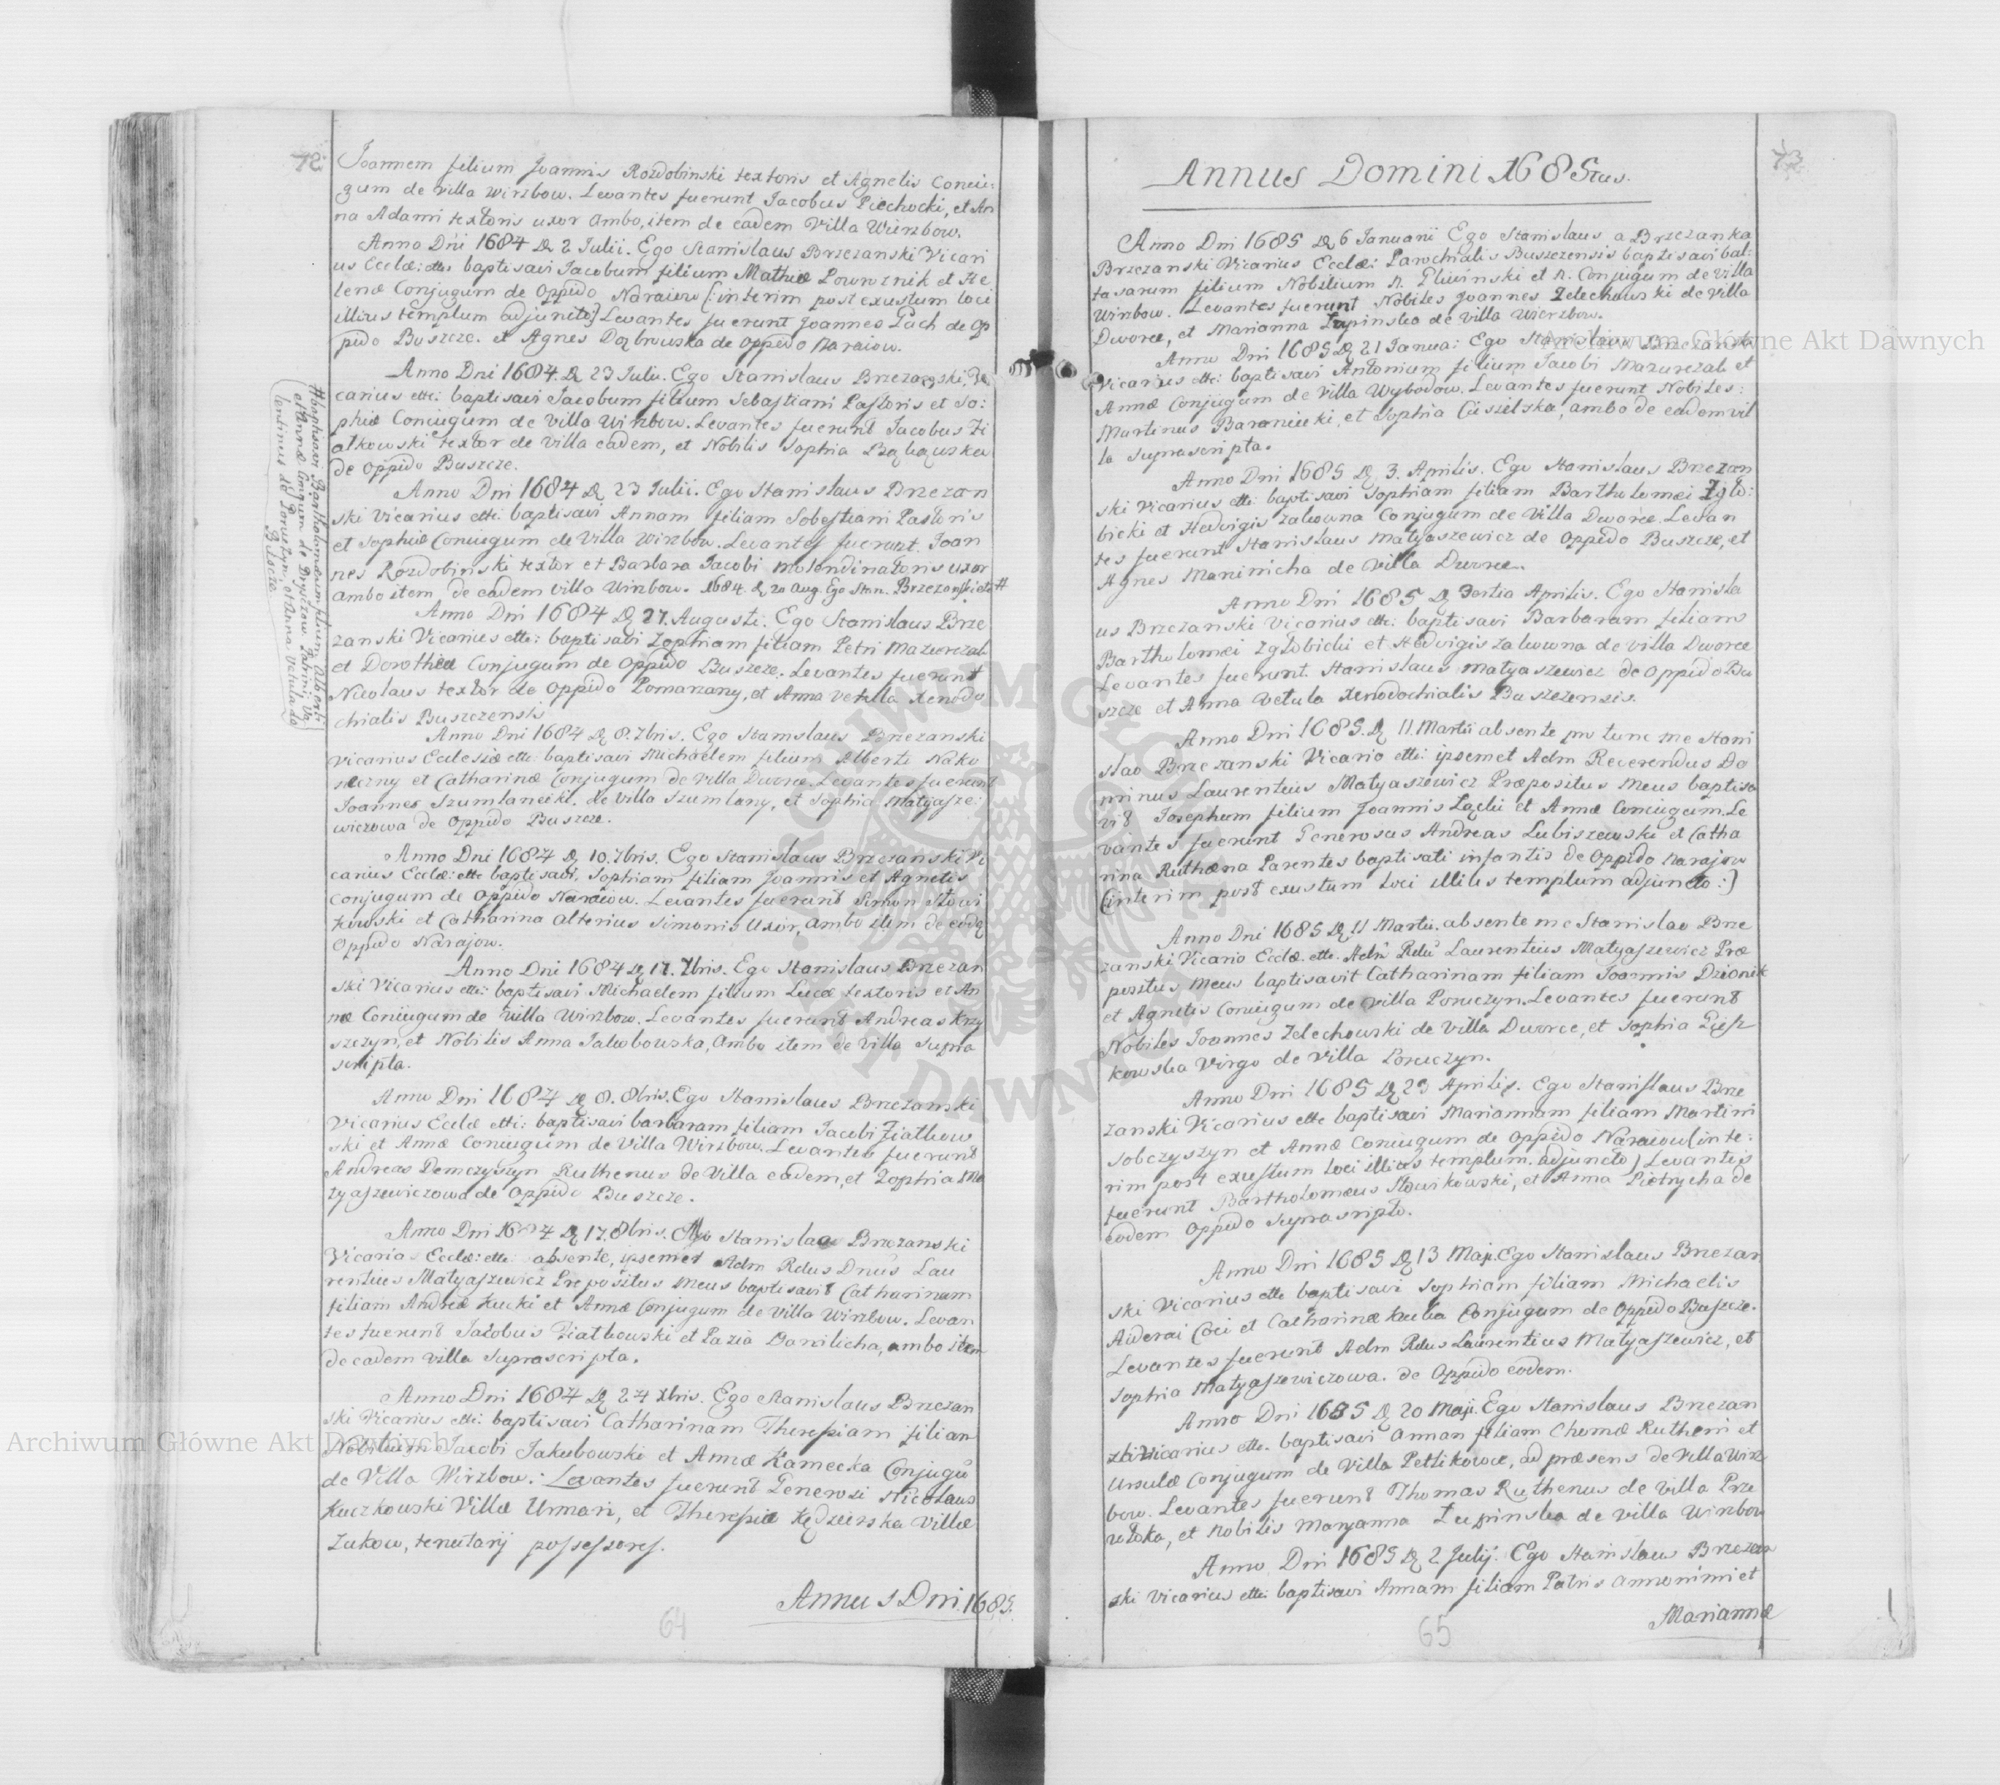 72
Joannem filium Joannis Rozdobinski textoris et Agnetis Conju:
gum de villa Wirzbow. Levantes fuerunt Jacobus Piechocki, et An
na Adami textoris uxor ambo, item de eadem Villa Wierzbow.
Anno Dni 1684 D 2 Julii. Ego Stanislaus Brzezanski Vicari
us Eccle: ette: baptisavi Jacobum filium Mathiæ Powroznik et He
lenæ Conjugum de Oppido Naraiow [: interim post exustum loci
illius templum adjuncto] Levantes fuerunt Joannes Pach de Op
pido Buszcze. et Agnes Dąbrowska de Oppido Naraiow.
Anno Dni 1684. D 23 Julii. Ego Stanislaus Brzezanski, Vi
carius ette: baptisavi Jacobum filium Sebastiani Pastoris et So:
phiæ Conjugum de Villa Wirzbow. Levantes fuerunt Jacobus Zi
atkowski textor de Villa eadem, et Nobilis Sophia
de Oppido Buszcze.
Anno Dni 1684 D 23 Julii. Ego Stanislaus Brzezan
ski Vicarius ette: baptisavi Annam filiam Sebestiani Pastoris
et Sophiæ Coniugum de Villa Wirzbow. Levantes fuerunt. Joan
nes Rozdobinski textor et Barbara Jacobi molendinatoris uxor
ambo item, de eadem villa Wirzbow. 1684. D 20 Aug. Ego Stan. Brzezanski ette #
# baptisavi Bartholomæum filium Alberti
et Annæ Conjugum de Patrini Va
lentinus de Poruczyn, et Anna Vetula de
Anno Dni 1684 D 27. Augusti. Ego Stanislaus Brze
zanski Vicarius ette: baptisavi Zophiam filiam Petri Mazurczak
et Dorotheæ Conjugum de Oppido Buszcze. Levantes fuerunt
Nicolaus textor de Oppido Pomorzany, et Anna vetula Xenodo
chialis Buszczensis
Anno Dni 1684 D 8. 7bris. Ego Stanislaus Brzezanski
Vicarius Ecclesiæ ette baptisavi Michaelem filium Alberti Nako
neczny et Catharinæ Conjugum de Villa Dworce. Levantes fuerunt
Joannes Szumlanecki. de Villa Szumlany, et Sophia Matyasze:
wiczowa de Oppido Buszcze.
Anno Dni 1684 D 10. 7bris. Ego Stanislaus Brzezanski Vi
carius Ecclæ: ette baptisavi. Sophiam filiam Joannis et Agnetis
conjugum de Oppido Naraiow. Levantes fuerunt Simon Słowi
kowski et Catharina alterius Simonis Uxor, ambo item de eodę
Oppido Narajow.
Anno Dni 1684 D 17. 7bris. Ego Stanislaus Brzezan
ski Vicarius ette: baptisavi Michaelem filium Lucæ textoris et An
næ Coniugum de Villa Wirzbow. Levantes fuerunt Andreas Krzy
szczyn, et Nobilis Anna Jakubowska, ambo item de Villa supra
scripta.
Anno Dni 1684 D 8. 8bris. Ego Stanislaus Brzezanski
Vicarius Ecclæ ette: baptisavi barbaram filiam Jacobi Ziatkow
ski et Annæ Coniugum de Villa Wirzbow. Levantes fuerunt
Andreas Demczyszyn Ruthenus de Villa eadem, et Zophia Ma
tyaszewiczowa de Oppido Buszcze.
Anno Dni 1684 D 17. 8bris. Me Stanislao Brzezanski
Vicario Ecclæ: ette: absente, ipsemet Adm Rdus Dnus Lau
rentius Matyaszewicz Prepositus Meus baptisavit Catharinam
filiam Andreæ Kucki et Annæ Conjugum de Villa Wirzbow. Levan
tes fuerunt Jakobus Ziatkowski et Pazia Danilicha, ambo item
de eadem villa suprascripta.
Anno Dni 1684 D 24 Xbris. Ego Stanislaus Brzezan
ski Vicarius ette: baptisavi Catharinam Theresiam filiam
Nobilium Jacobi Jakubowski et Annæ Kamecka Conjugũ
de Villa Wirzbow.: Levantes fuerunt Generosi Nicolaus
Kuczkowski Villæ Urman, et Theresia Kędzierska Villæ
Zukow, tenutarij possessores.
Annus Dni. 1685.
64
73
Annus Domini 1685tus.
Anno Dni 1685 D 6 Januarii Ego Stanislaus a Brzezanka
Brzezanski Vicarius Ecclæ: Parochialis Buszczensis baptisavi bal:
tasarum filium Nobilium N. Pliwinski et N. Conjugum de Villa
Wirzbow. Levantes fuerunt Nobiles Joannes Zelechowski de Villa
Dworce, et Marianna Łupinska de Villa Wierzbow.
Anno Dni 1685 D 21 Janua: Ego Stanislaus Brzezanski
Vicarius ette: baptisavi Antonium filium Jacobi Mazurczak et
Annæ Conjugum de Villa Wybodow. Levantes fuerunt Nobiles:
Martinus Baraniecki, et Sophia Cisielska, ambo de eadem vil
la suprascripta.
Anno Dni 1685 D 3. Aprilis. Ego Stanislaus Brzezan
ski Vicarius ette: baptisavi Sophiam filiam Bartholomei Zgło:
bicki et Hedvigis Zalowna Conjugum de Villa Dworce. Levan
tes fuerunt Stanislaus Matyaszewicz de Oppido Buszcze, et
Agnes Maninicha de Villa Dworce.
Anno Dni 1685 D Tertia Aprilis. Ego Stanisla
us Brzezanski Vicarius ette: baptisavi Barbaram filiam
Bartholomei Zgłobicki et Hedvigis Zalowna de villa Dworce
Levantes fuerunt. Stanislaus Matyaszewicz de Oppido Bu
szcze et Anna vetula Xenodochialis Buszczensis.
Anno Dni 1685. D 11. Martii absente pro tunc me Stani
slao Brzezanski Vicario ette: ipsemet Adm Reverendus Do
minus Laurentius Matyaszewicz Præpositus Meus baptisa
vit Josephum filium Joannis Lącki et Annæ Coniugum. Le
vantes fuerunt Generosus Andreas Lubiszewski et Catha
rina Ruthæna Parentes baptisati infantis de Oppido Narajow
(interim post exustum loci illius templum adjuncto:)
Anno Dni 1685 D 11 Martii. absente me Stanislao Brze
zanski Vicario Ecclæ. ette. Adm Rdus Laurentius Matyaszewicz Præ
positus Meus baptisavit Catharinam filiam Joannis Dzionik
et Agnetis Coniugum de Villa Poruczyn. Levantes fuerunt
Nobiles Joannes Zelechowski de Villa Dworce, et Sophia Piesz
kowska Virgo de Villa Poruczyn.
Anno Dni 1685 D 29 Aprilis. Ego Stanislaus Brze
zanski Vicarius ette baptisavi Mariannam filiam Martini
Sobczyszyn et Annæ Coniugum de Oppido Naraiow (inte:
rim post exustum loci illius templum. adjuncto) Levantes
fuerunt Bartholomæus Słowikowski, et Anna Piotrycha de
eodem Oppido suprascripto.
Anno Dni 1685 D 13 Maji. Ego Stanislaus Brzezan
ski Vicarius ette baptisavi Sophiam filiam Michaelis
Coci et Catharinæ Kucka Conjugum de Oppido Buszcze.
Levantes fuerunt Adm Rdus Laurentius Matyaszewicz, et
Sophia Matyaszewiczowa. de Oppido eodem.
Anno Dni 1685 D 20 Maji. Ego Stanislaus Brzezan
ski Vicarius ette. baptisavi Annan filiam Chomæ Rutheni et
Ursulæ Conjugum de Villa Petlikowce, ad præsens de Villa Wirz
bow. Levantes fuerunt Thomas Ruthenus de villa Prze
włoka, et Nobilis Maryanna Łupinska de villa Wirzbow
Anno Dni 1685 D 2 Julij. Ego Stanislaus Brzezan
ski Vicarius ette: baptisavi Annam filiam Patris Annonimi et
Mariannæ
65
Archiwum Główne Akt Dawnych
Archiwum Główne Akt Dawnych